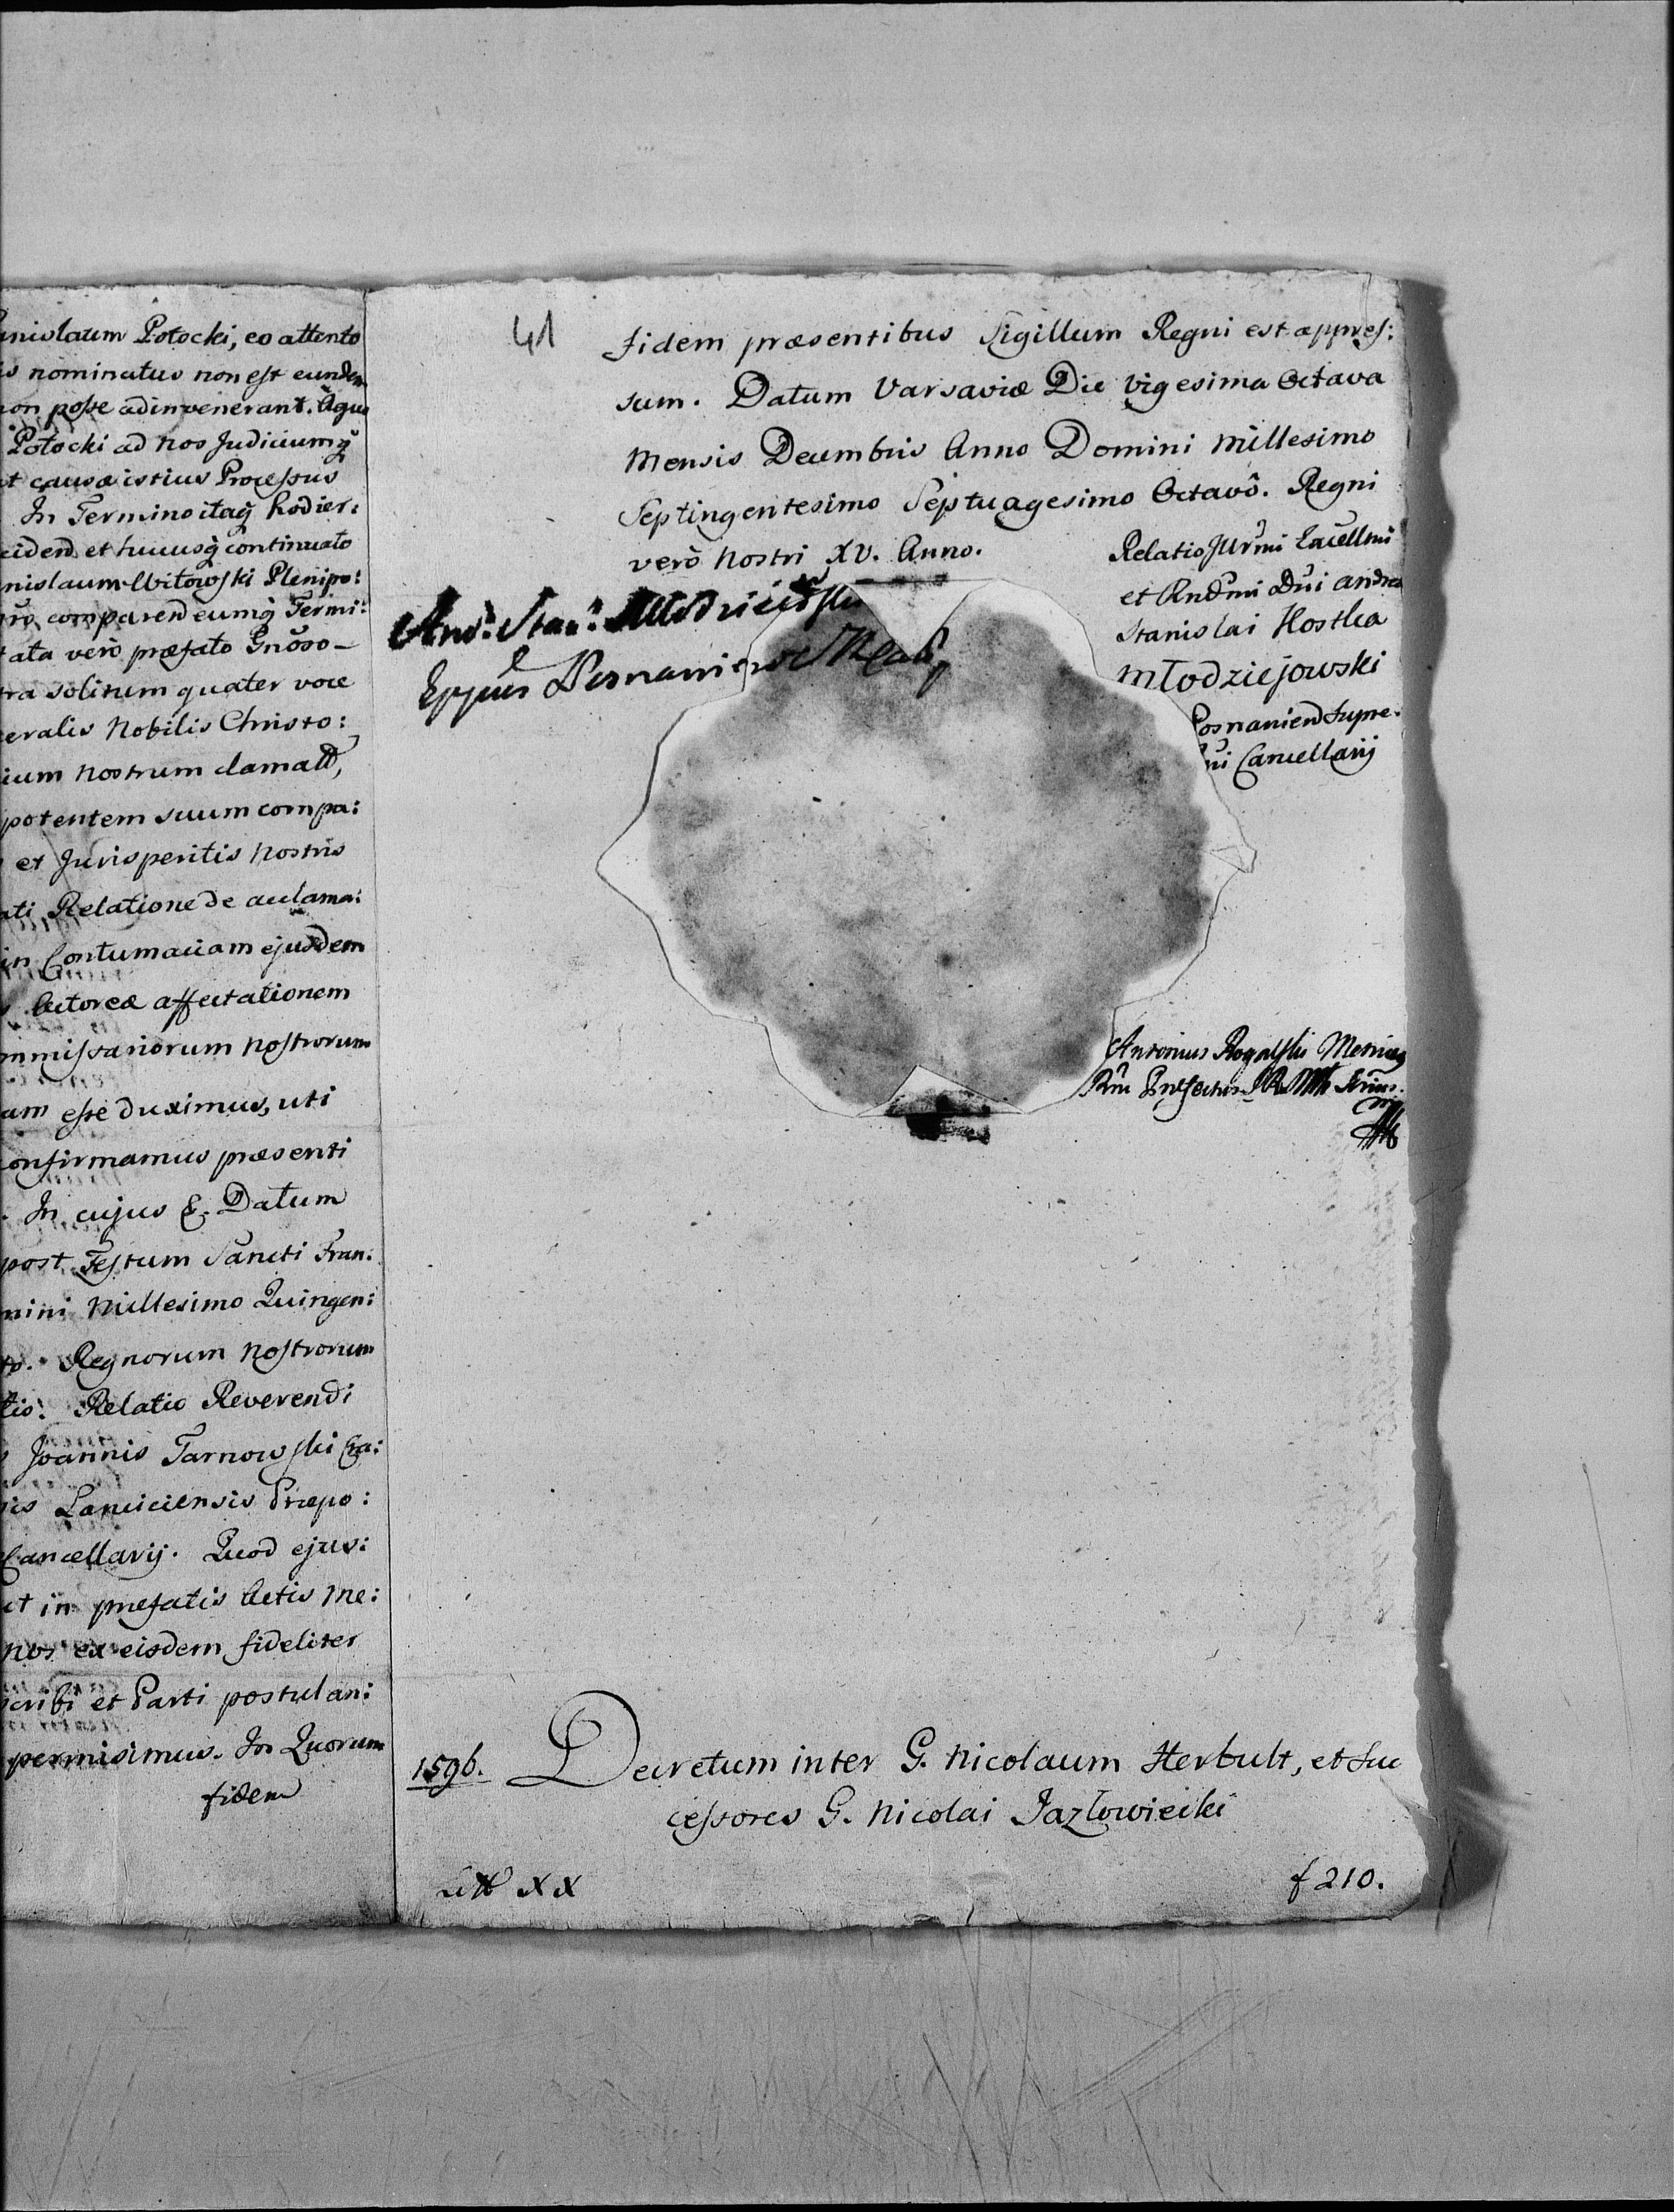 Potocki, eo attento
nominatus non est eundem
posse adinvenerant. Aque
Potocki ad nos Judiciumq
causæ istius Processus
In Termino itaq hodier:
et hucusq continuato
Witowski Plenipo:
comparend eumq Termi:
vero præfato Gnoso-
solitum quater voce
Nobilis Christo:
nostrum clamatt,
potentem suum compa:
et Jurisperitis nostris
Relatione de acclama:
in Contumaciam ejusdem
Actoreæ affectationem
nostrorum
esse duximus, uti
confirmamus præsenti
In cujus &. Datum
post Festum Sancti Fran:
Millesimo Quingen:
Regnorum nostrorum
Relatio Reverendi
Joannis Tarnowski Cra:
Lanciciensis Præpo:
Cancellarij. Quod ejus:
in præfatis Actis Me:
nos ex eisdem fideliter
et Parti postulan:
permisimus. In Quorum
fidem
41
fidem præsentibus Sigillum Regni est appres:
sum. Datum Varsaviæ Die Vigesima Octava
Mensis Decembris Anno Domini Millesimo
Septingentesimo Septuagesimo Octavô. Regni
verò Nostri XV. Anno.
Relatio Illrmi Excellmi
et Rndmi Dni Andreæ
Stanislai Kostka
Młodziejowski
Posnanien Supre:
ni Cancellarij
And: Stan: Młodziejowski
Eppus Posnanien
Antonius Rogalski Metrices
Rni Præfectus
1596. Decretum inter G. Nicolaum Herbult, et Suc
cessores G. Nicolai Jazłowiecki
Litt XX
f 210.